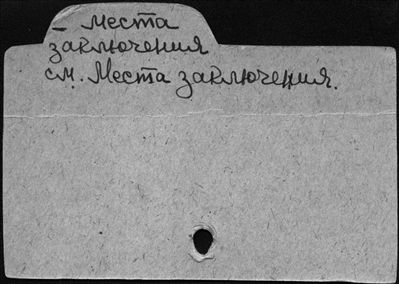 – места
заключения
см. Места заключения.